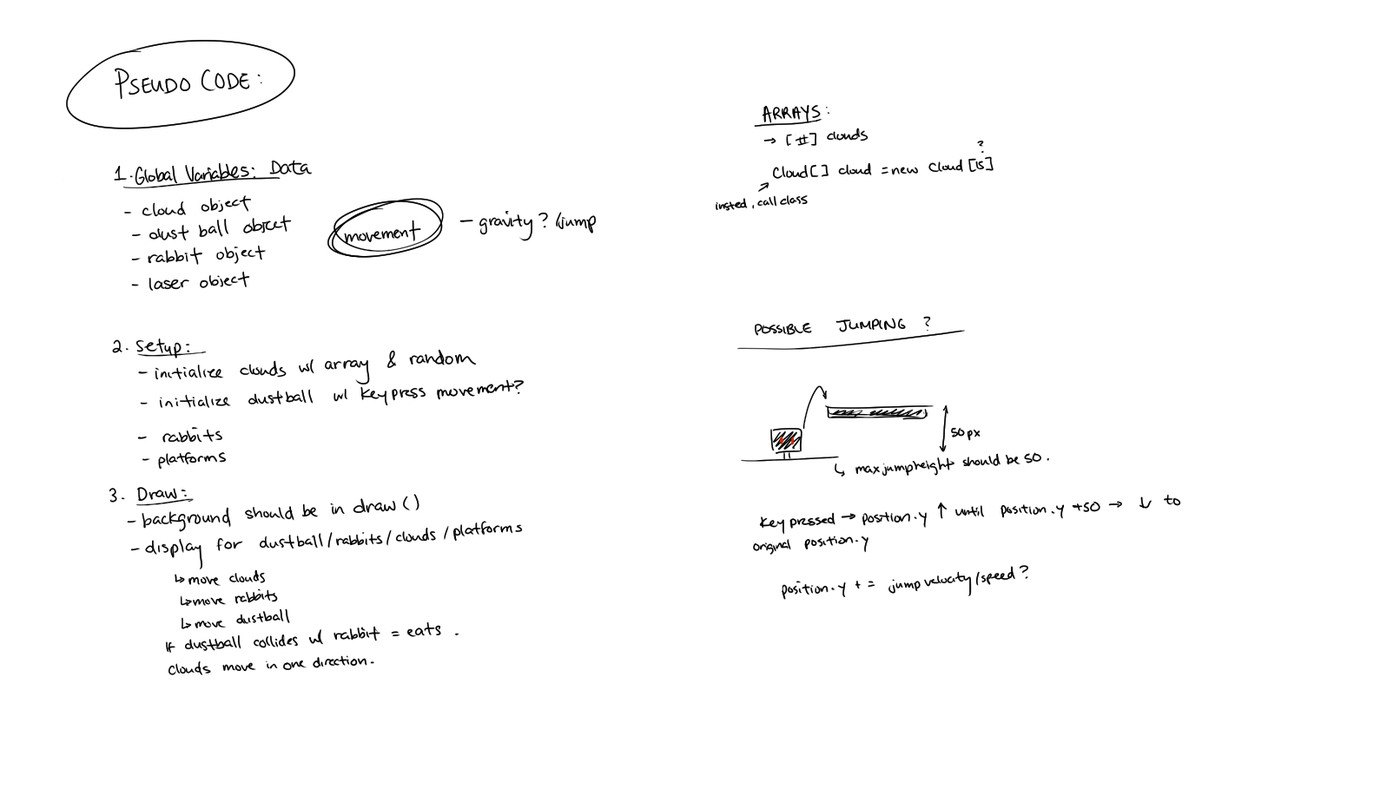 PSEUDO CODE:
1. Global Variables: Data
- cloud object
- dust ball object
- rabbit object
- laser object
movement
- gravity? /jump
2. Setup:
- initialize clouds w/ array & random
- initialize dustball w/ keypress movement?
- rabbits
- platforms
3. Draw:
- background should be in draw()
- display for dustball/rabbits/clouds/platforms
↳ move clouds
↳ move rabbits
↳ move dustball
If dustball collides w/ rabbit = eats.
Clouds move in one direction.
ARRAYS:
→ [#] clouds
?
Cloud[] cloud = new Cloud[15]
insted, call class
POSSIBLE JUMPING?
50px
↳ maxjumpheight should be 50.
Key pressed → position.y ↑ until position.y +50 → ↓ to
original position.y
position.y += jump velocity/speed?